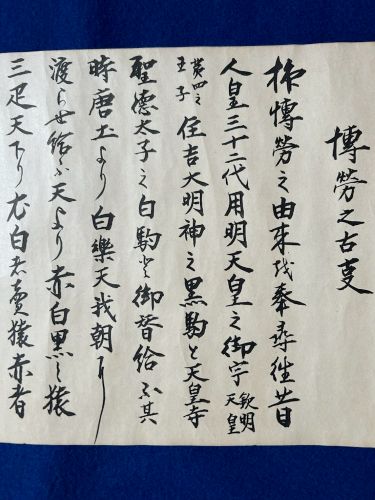 博勞之古支
抑博勞之由来越奉尋往昔
人皇三十二代用明天皇之御宇欽明天皇
第四之王子住吉大明神之黒駒と天皇寺
聖徳太子之白駒と御替給ふ其
時唐土より白樂天我朝に
渡らせ給ふ天より赤白黒之猿
三疋天下り尤白者賣猿赤者